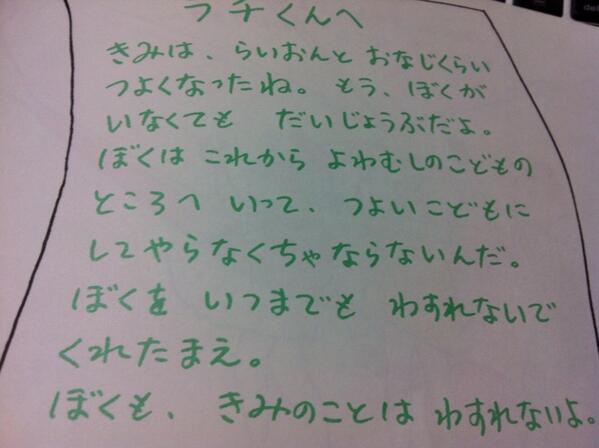 フチくんへ
きみは、らいおんと おなじくらい
つよくなったね。もう、ぼくが
いなくても だいじょうぶだよ。
ぼくは これから よわむしのこどもの
ところへ いって、つよいこどもに
してやらなくちゃならないんだ。
ぼくを いつまでも わすれないで
くれたまえ。
ぼくも、きみのことは わすれないよ。